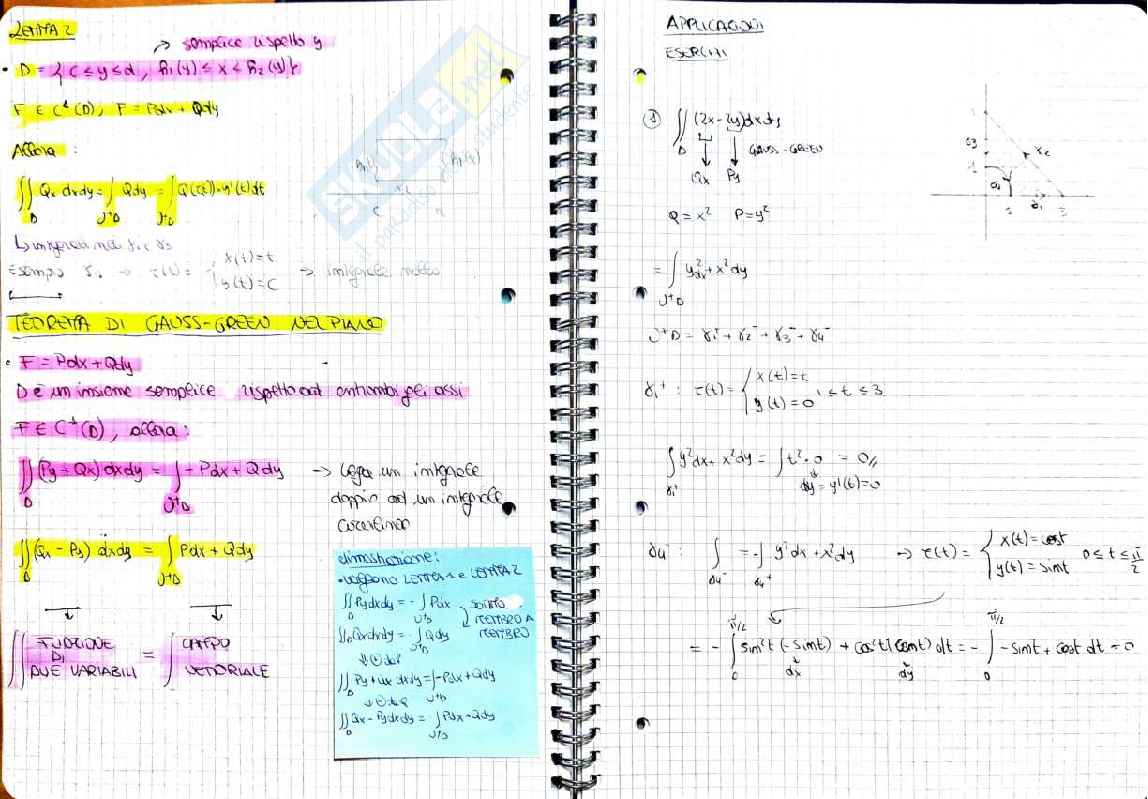 LEMMA 2
→ semplice rispetto y
• D = { c ≤ y ≤ d, h₁(y) ≤ x ≤ h₂(y) }
F ∈ C¹(D), F = Pdx + Qdy
Allora :
∬_D Qx dxdy = ∫_∂⁺D Qdy = ∫_∂⁺D Q(r(t))·y'(t) dt
Esempio → r(t) = { x(t) = t
y(t) = c → integrale nullo
TEOREMA DI GAUSS-GREEN NEL PIANO
• F = Pdx + Qdy
D è un insieme semplice rispetto ad entrambi gli assi
F ∈ C¹(D), allora :
∬_D (Py + Qx) dxdy = ∫_∂⁺D -Pdx + Qdy → lega un integrale
doppio ad un integrale
curvilineo
∬_D (Qx - Py) dxdy = ∫_∂⁺D Pdx + Qdy
∬ FUNZIONE DI DUE VARIABILI = ∫ CAMPO VETTORIALE
dimostrazione:
• valgono LEMMA 1 e LEMMA 2
∬_D Py dxdy = - ∫_∂⁺D Pdx
∬_D Qx dxdy = ∫_∂⁺D Qdy
MEMBRO A
MEMBRO
∬_D Py + Qx dxdy = ∫_∂⁺D -Pdx + Qdy
∬_D Qx - Py dxdy = ∫_∂⁺D Pdx + Qdy
SKUOLA.net
APPLICAZIONI
ESERCIZI
① ∬_D (2x - 2y) dxdy
GAUSS-GREEN
Qx Py
Q = x² P = y²
= ∫_∂⁺D y² dx + x² dy
∂⁺D = γ₁⁺ + γ₂⁻ + γ₃⁻ + γ₄⁻
γ₁⁺ : r(t) = { x(t) = t
y(t) = 0 , 1 ≤ t ≤ 3
∫_γ₁⁺ y² dx + x² dy = ∫ t² · 0 = 0 //
dy = y'(t) = 0
γ₄⁻ : ∫_γ₄⁻ = - ∫_γ₄⁺ y² dx + x² dy → r(t) = { x(t) = cost
y(t) = sint 0 ≤ t ≤ π/2
= - ∫₀^π/2 sin²t (-sint) + cos²t (cost) dt = - ∫₀^π/2 -sint + cost dt = 0
dx dy